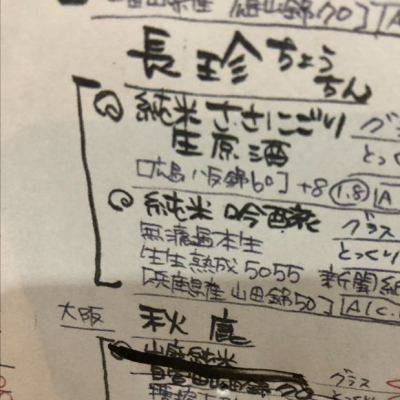 山田錦70]
長珍 ちょうちん
純米 ささにごり グラ
生原酒 とっく
[広島 八反錦60] +8 (1.8) A
純米吟醸 グラス
無濾過本生 とっくり
生生熟成5055 新聞紙
[兵庫県産 山田錦50] A/C.
大阪 秋鹿
グラス
とっく